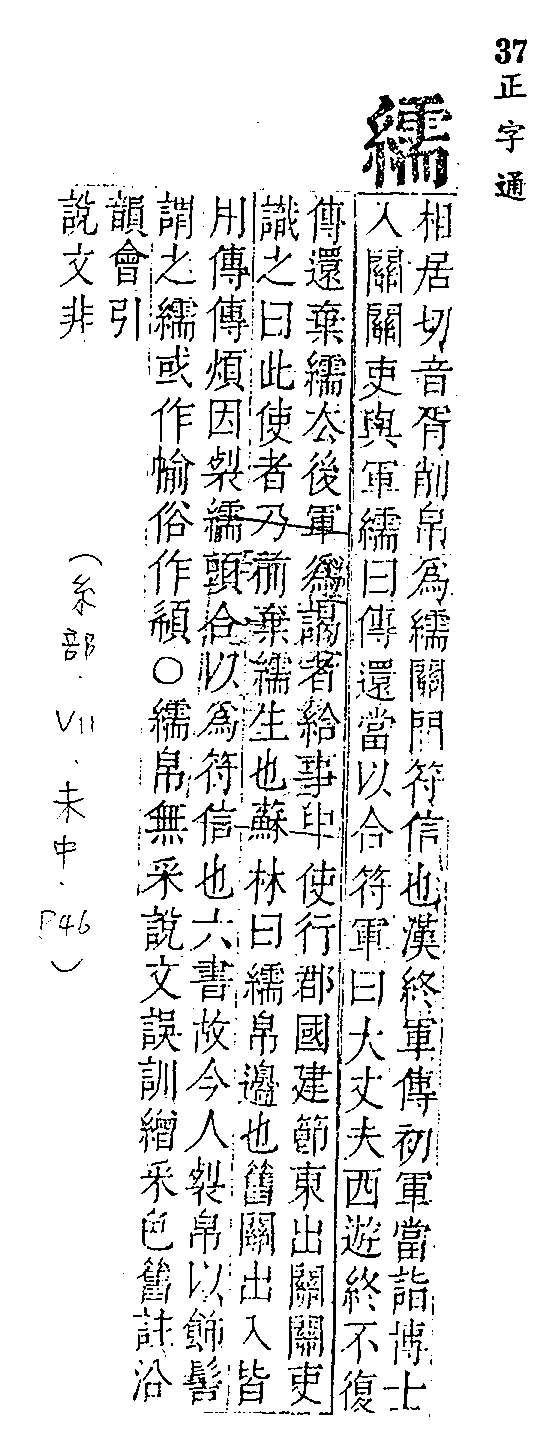 37正字通
繻
相居切音胥削帛為繻關門符信也漢終軍傳初軍當詣博士
入關關吏與軍繻曰傳還當以合符軍曰大丈夫西遊終不復
傳還棄繻去後軍為謁者給事中使行郡國建節東出關關吏
識之曰此使者乃前棄繻生也蘇林曰繻帛邊也舊關出入皆
用傳傳煩因裂繻頭合以為符信也六書故今人裂帛以飾髻
謂之繻或作㡏俗作𩓣〇繻帛無采說文誤訓繒采色舊註沿
韻會引
說文非
(糸部.VII、未中.P46)